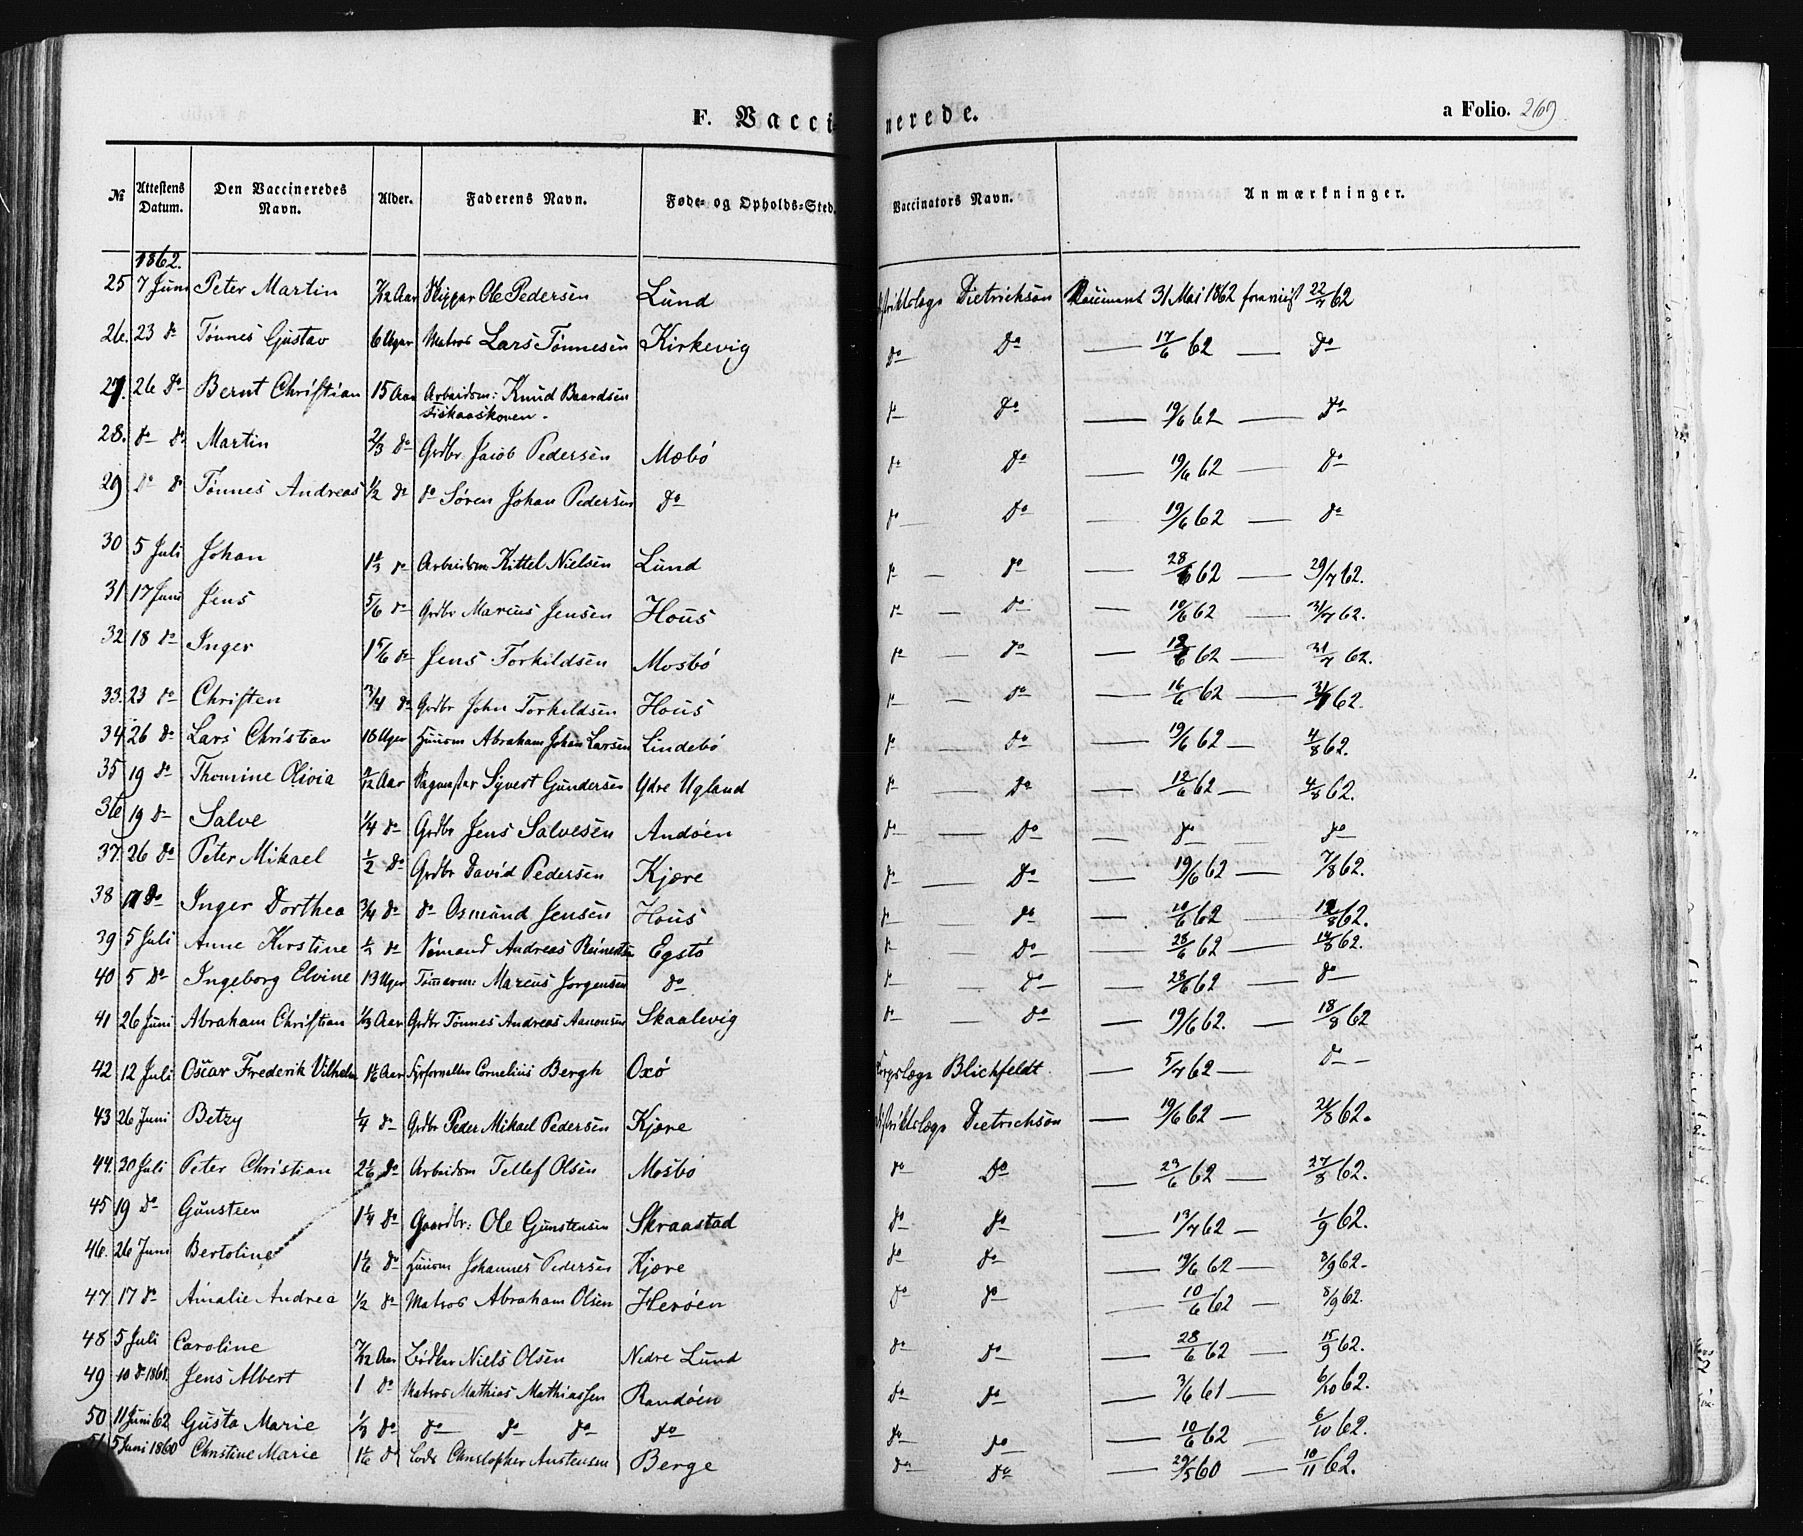 F. Vaccinerede.
a Folio. 269
№ Attestens Datum. Den Vaccineredes Navn. Alder. Faderens Navn. Føde- og Opholds-Sted. Vaccinators Navn. Anmærkninger.
1862.
25 7 Juni Peter Martin 7/12 Aar Skipper Ole Pedersen Lund Distriktslæge Dietrichson Vaccineret 31 Mai 1862 foreviist 22/7 62
26. 23 do Tønnes Gustav 6 Uger Matros Lars Tønnesen Kirkevig do Do — 17/6 62 — Do
27. 26 do Bernt Christian 15 Aar Arbeidsm: Knud Baardsen do Do — 19/6 62 — Do
Fiskaaskoven.
28. do do Martin 2/3 do Grdbr. Jacob Pedersen Mæbø do Do — 19/6 62 — Do
29 Do do Tønnes Andreas 1/2 do do Søren Johan Pedersen Do do Do — 19/6 62 — do
30 5 Juli Johan 1 1/3 do Arbeidsm Kittel Nielsen Lund do — do — 28/6 62 — 29/7 62.
31 17 Juni Jens 5/6 do Grdbr Marcus Jensen Hous do — do — 10/6 62 — 31/7 62.
32 18 do Inger 1 5/6 do Jens Torkildsen Mosbø do — do — 12/6 62 — 31/7 62.
33. 23 do Christen 3/4 do Grdbr John Torkildsen Hous do — do — 16/6 62 — 31/7 62.
34. 26 do Lars Christian 16 Uger Huusm Abraham Johan Larsen Lindebø do — do — 19/6 62 — 4/8 62.
35 19 do Thomine Olivia 9/12 Aar Syvert Gundersen Ydre Ugland do — Do — 12/6 62 — 4/8 62.
36 19 do Salve 1/4 do Grdbr Jens Salvesen Andøen do — Do — do — do
37. 26 do Peter Mikael 1/2 do Grdbr David Pedersen Kjære do — Do — 19/6 62 — 7/8 62.
38 17 do Inger Dorthea 3/4 do do Osmund Jensen Hous do — do — 10/6 62 — 12/8 62.
39 5 Juli Anne Kirstine 1/2 do Sømand Andreas Reinertsen Egstø do — Do — 28/6 62 — 14/8 62.
40 5 Do Ingeborg Elvine 13 Uger Tømmerm: Marcus Jørgensen do do — do — 28/6 62 — do
41 26 Juni Abraham Christian 1/3 Aar Grdbr Tønnes Andreas Aanonsen Skaalevig do — do — 19/6 62. — 18/8 62
42 12 Juli Oscar Frederik Vilhelm 1 1/6 Aar Fyrforvalter Cornelius Bergh Oxø Corpslæge Blichfeldt — 5/7 62 — do
43 26 Juni Betzy 1/4 do Grdbr Peder Mikael Pedersen Kjære Distriktslæge Dietrichson — 19/6 62 — 21/8 62.
44. 20 Juli Peter Christian 2 1/6 do Arbeidsm Tellef Olsen Mosbø do Do — 23/6 62 — 27/8 62.
45 19 do Gunsteen 1 1/4 do Gaardbr: Ole Gunstensen Skraastad do do — 13/7 62 — 1/9 62.
46. 26 Juni Bertoline 1 1/6 do Huusm Johannes Pedersen Kjære do do — 19/6 62 — 3/9 62.
47 17 do Amalie Andrea 1/2 do Matros Abraham Olsen Herøen do do — 10/6 62 — 8/9 62.
48 5 Juli Caroline 7/12 Aar Bødker Niels Olsen Nedre Lund do do — 28/6 62 — 15/9 62.
49 10 do 1861. Jens Albert 1 do Matros Mathias Mathiassen Randøen do do — 3/6 61 — 6/10 62.
50 11 Juni 62 Gusta Marie 1/3 do do do do do do do — 10/6 62 — 6/10 62.
51 5 Juni 1860 Christine Marie 1 1/6 do Lods Christopher Austensen Berge do do — 29/5 60 — 10/11 62.